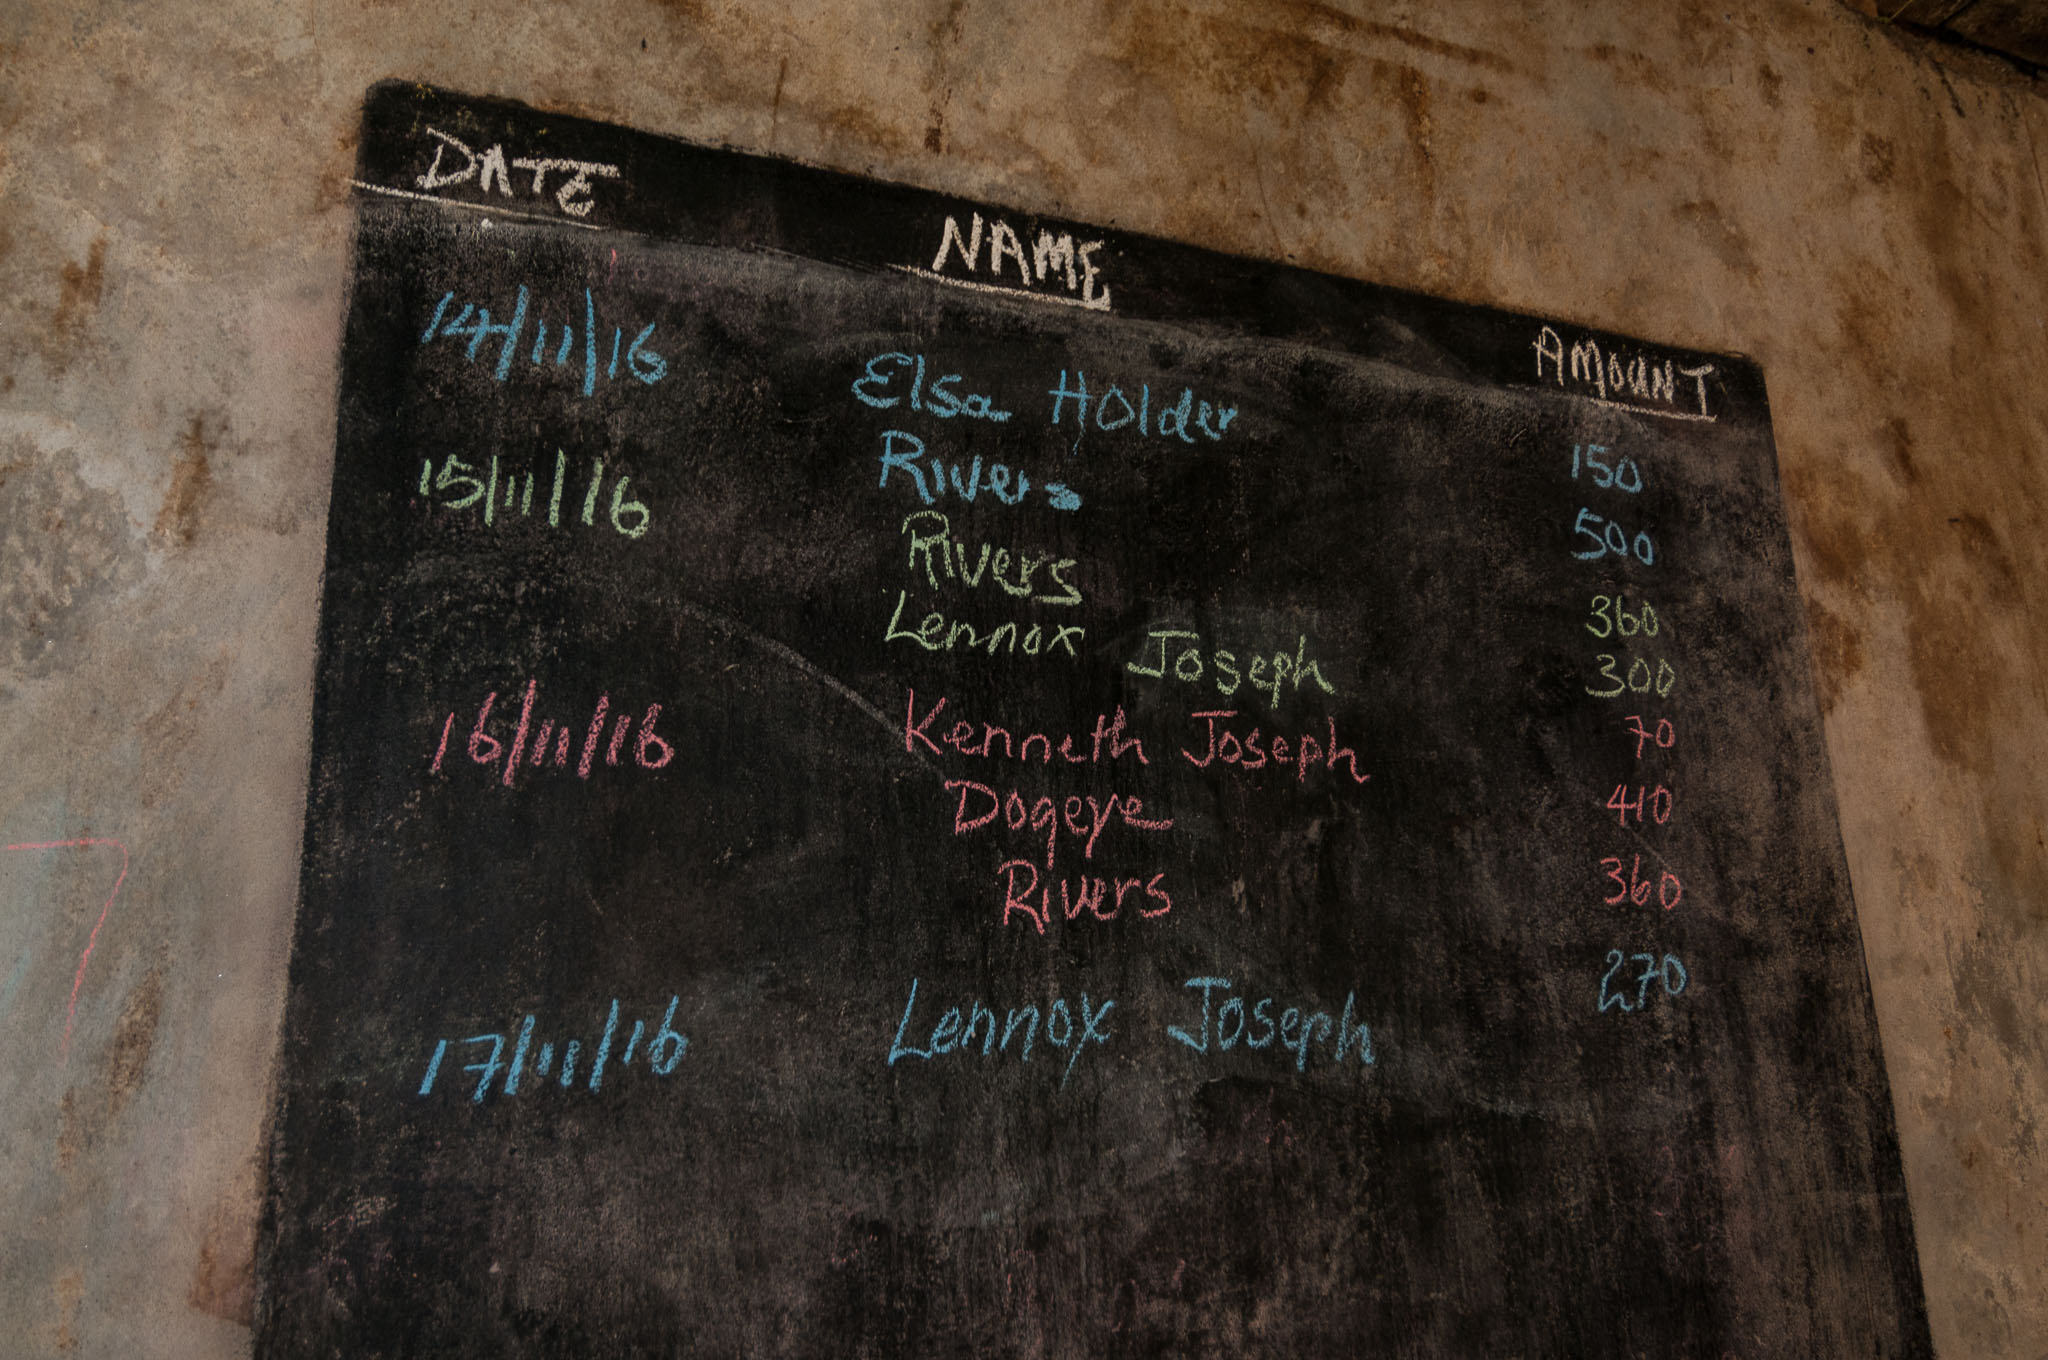 DATE NAME AMOUNT
14/11/16 Elsa Holder 150
Rivers 500
15/11/16 Rivers 360
Lennox Joseph 300
16/11/16 Kenneth Joseph 70
Dogeye 410
Rivers 360
17/11/16 Lennox Joseph 270